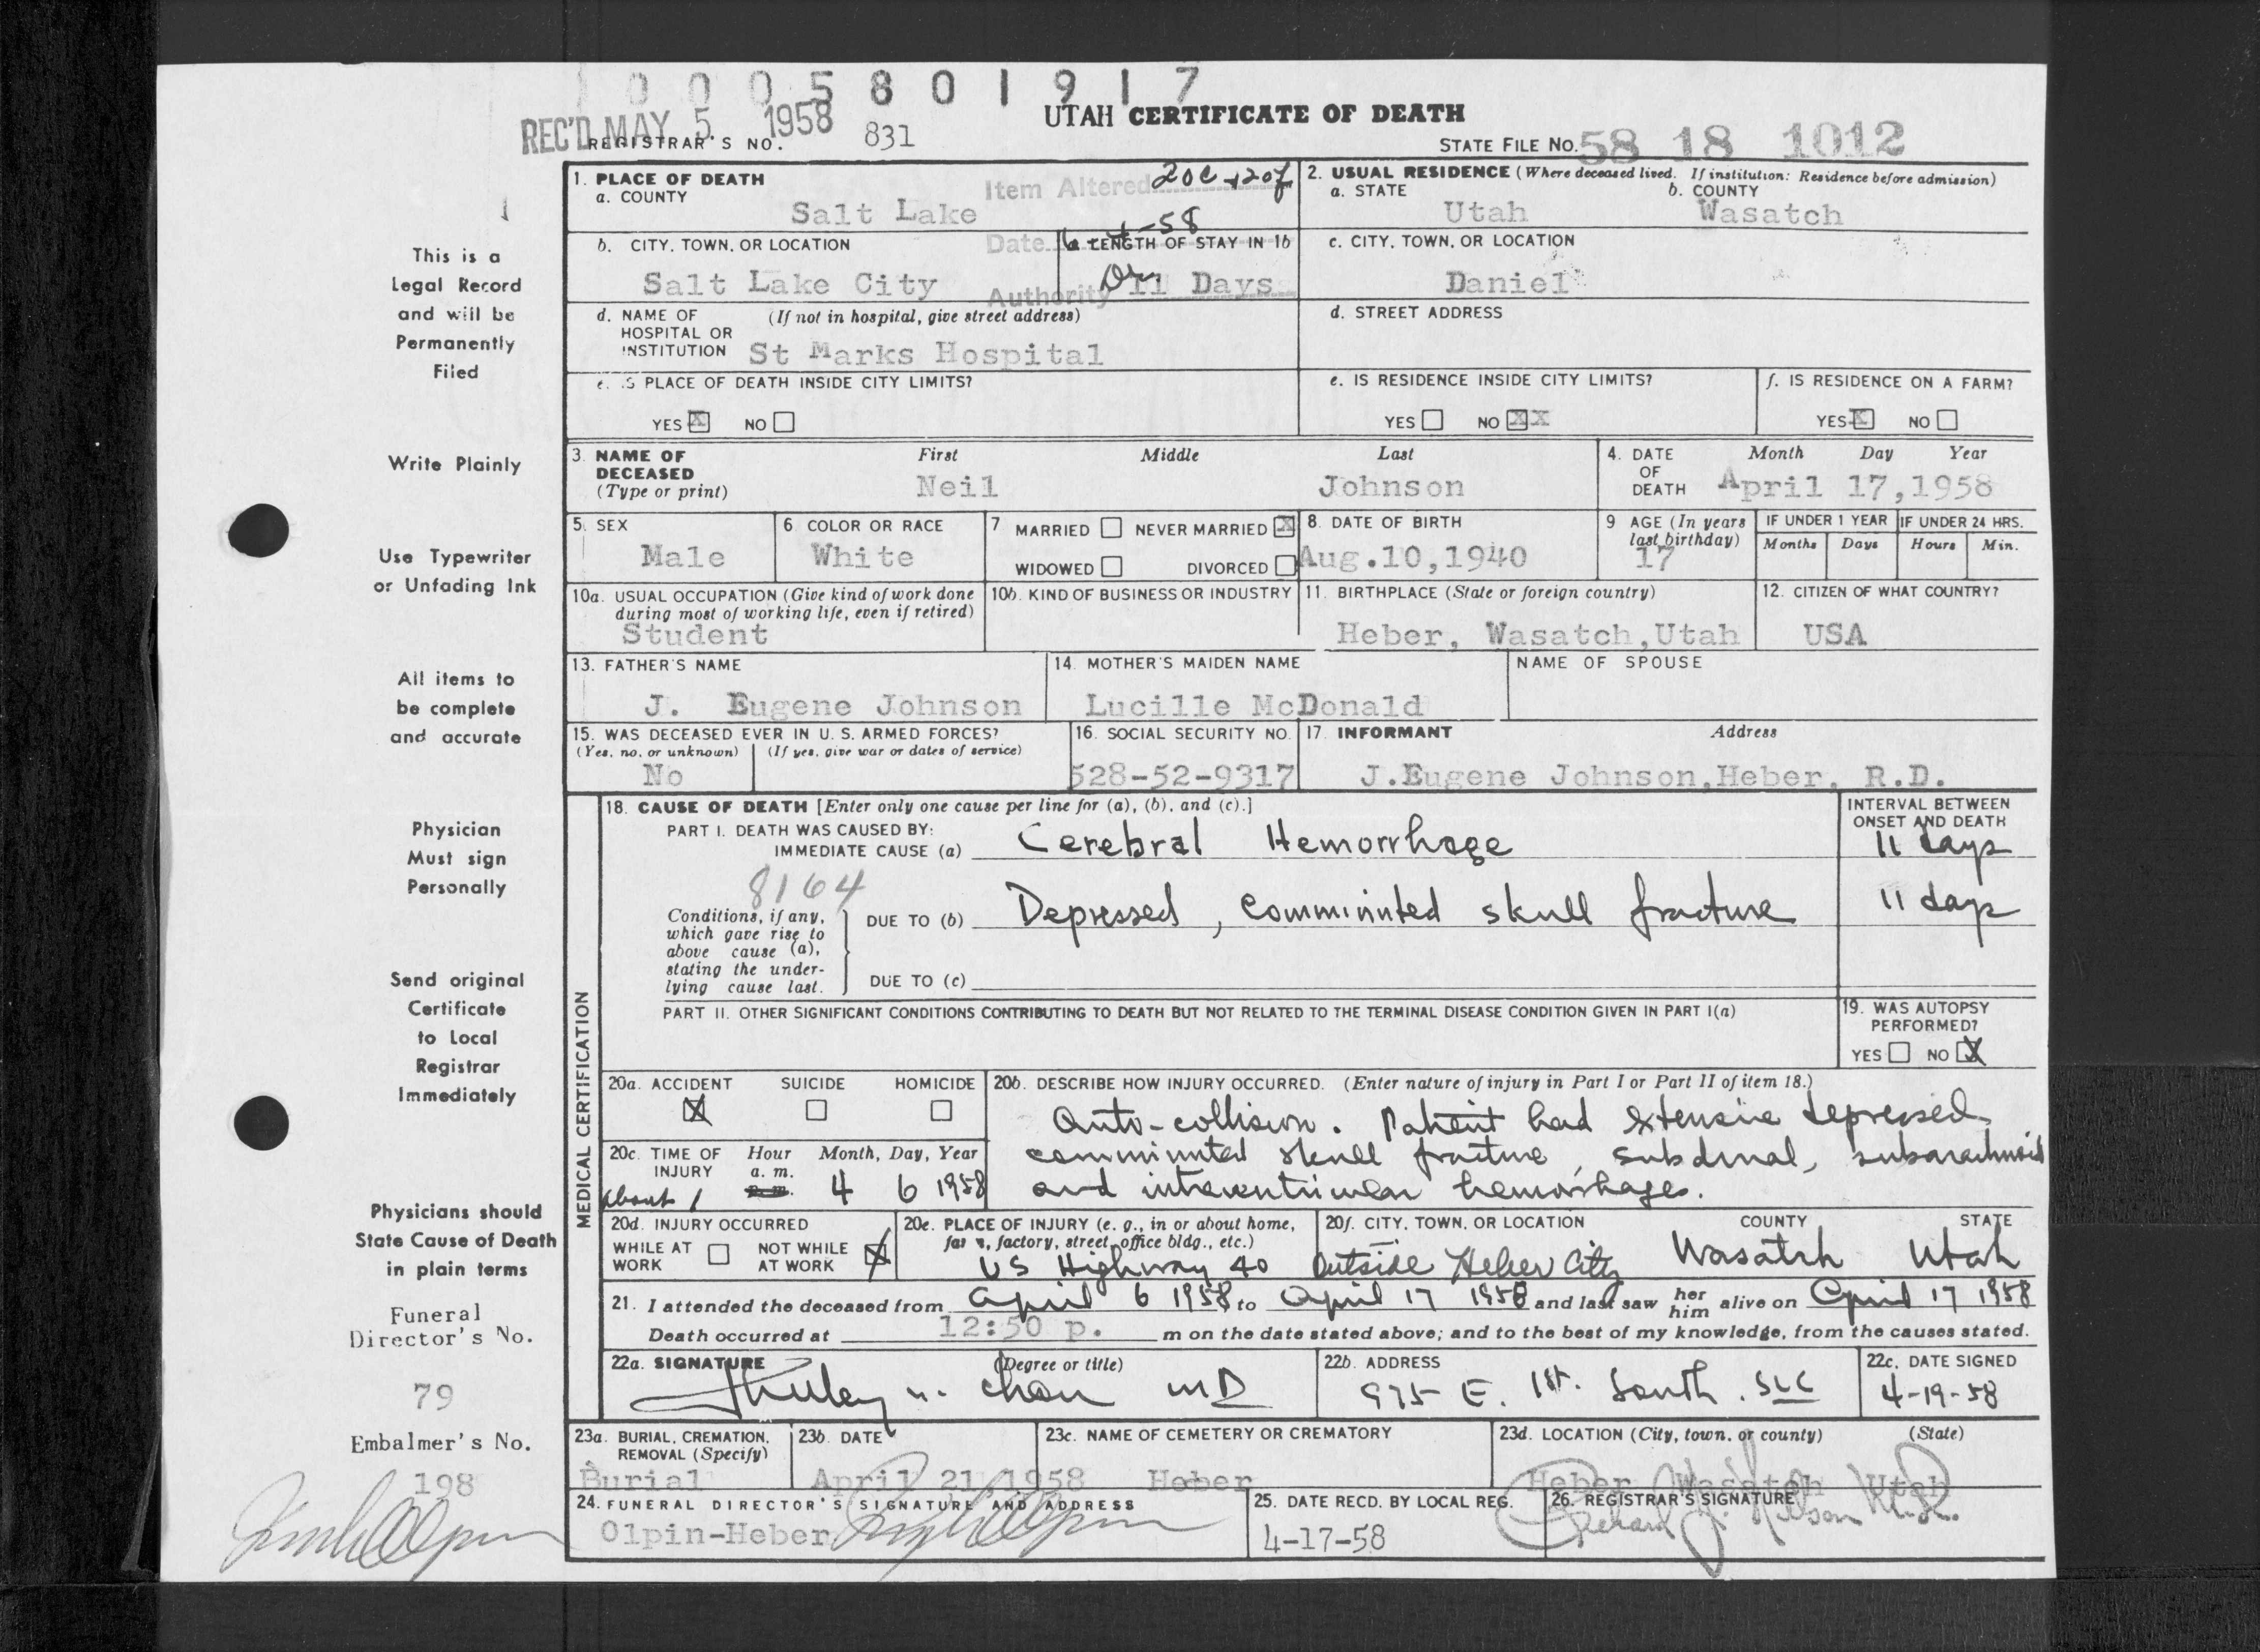 0 0 0 5 8 0 1 9 1 7
REC'D MAY 5 1958
REGISTRAR'S NO. 831
UTAH CERTIFICATE OF DEATH
STATE FILE NO. 58 18 1012
This is a
Legal Record
and will be
Permanently
Filed
Write Plainly
Use Typewriter
or Unfading Ink
All items to
be complete
and accurate
Physician
Must sign
Personally
Send original
Certificate
to Local
Registrar
Immediately
Physicians should
State Cause of Death
in plain terms
Funeral
Director's No.
79
Embalmer's No.
198
1. PLACE OF DEATH
a. COUNTY
Salt Lake
Item Altered 20e + 20f
Date 6-4-58
Authority
2. USUAL RESIDENCE (Where deceased lived. If institution: Residence before admission)
a. STATE b. COUNTY
Utah Wasatch
b. CITY, TOWN, OR LOCATION
Salt Lake City
LENGTH OF STAY IN 1b
11 Days
c. CITY, TOWN, OR LOCATION
Daniel
d. NAME OF HOSPITAL OR INSTITUTION (If not in hospital, give street address)
St Marks Hospital
d. STREET ADDRESS
e. IS PLACE OF DEATH INSIDE CITY LIMITS?
YES X NO
e. IS RESIDENCE INSIDE CITY LIMITS?
YES NO XX
f. IS RESIDENCE ON A FARM?
YES X NO
3. NAME OF DECEASED (Type or print)
First Middle Last
Neil Johnson
4. DATE OF DEATH
Month Day Year
April 17,1958
5. SEX
Male
6. COLOR OR RACE
White
7 MARRIED NEVER MARRIED X
WIDOWED DIVORCED
8. DATE OF BIRTH
Aug.10,1940
9 AGE (In years last birthday)
17
IF UNDER 1 YEAR IF UNDER 24 HRS.
Months Days Hours Min.
10a. USUAL OCCUPATION (Give kind of work done during most of working life, even if retired)
Student
10b. KIND OF BUSINESS OR INDUSTRY
11. BIRTHPLACE (State or foreign country)
Heber, Wasatch,Utah
12. CITIZEN OF WHAT COUNTRY?
USA
13. FATHER'S NAME
J. Eugene Johnson
14. MOTHER'S MAIDEN NAME
Lucille McDonald
NAME OF SPOUSE
15. WAS DECEASED EVER IN U. S. ARMED FORCES?
(Yes, no, or unknown) (If yes, give war or dates of service)
No
16. SOCIAL SECURITY NO.
528-52-9317
17. INFORMANT Address
J.Eugene Johnson,Heber, R.D.
MEDICAL CERTIFICATION
18. CAUSE OF DEATH [Enter only one cause per line for (a), (b), and (c).]
INTERVAL BETWEEN
ONSET AND DEATH
PART I. DEATH WAS CAUSED BY:
IMMEDIATE CAUSE (a) Cerebral Hemorrhage 11 days
8164
Conditions, if any, which gave rise to above cause (a), stating the under-lying cause last.
DUE TO (b) Depressed, comminuted skull fracture 11 days
DUE TO (c)
PART II. OTHER SIGNIFICANT CONDITIONS CONTRIBUTING TO DEATH BUT NOT RELATED TO THE TERMINAL DISEASE CONDITION GIVEN IN PART I(a)
19. WAS AUTOPSY PERFORMED?
YES NO X
20a. ACCIDENT SUICIDE HOMICIDE
X
20b. DESCRIBE HOW INJURY OCCURRED. (Enter nature of injury in Part I or Part II of item 18.)
Auto-collision. Patient had extensive depressed
comminuted skull fracture, subdural, subarachnoid
and intraventricular hemorrhages.
20c. TIME OF INJURY
Hour Month, Day, Year
a. m.
p. m.
about 1 4 6 1958
20d. INJURY OCCURRED
WHILE AT WORK NOT WHILE AT WORK X
20e. PLACE OF INJURY (e. g., in or about home, farm, factory, street, office bldg., etc.)
US Highway 40
20f. CITY, TOWN, OR LOCATION COUNTY STATE
Outside Heber City Wasatch Utah
21. I attended the deceased from April 6 1958 to April 17 1958 and last saw her him alive on April 17 1958
Death occurred at 12:50 p. m on the date stated above; and to the best of my knowledge, from the causes stated.
22a. SIGNATURE (Degree or title)
Chow MD
22b. ADDRESS
975 E. 1st. South. SLC
22c. DATE SIGNED
4-19-58
23a. BURIAL, CREMATION, REMOVAL (Specify)
Burial
23b. DATE
April 21,1958
23c. NAME OF CEMETERY OR CREMATORY
Heber
23d. LOCATION (City, town, or county) (State)
Heber Wasatch Utah
24. FUNERAL DIRECTOR'S SIGNATURE AND ADDRESS
Olpin-Heber
25. DATE RECD. BY LOCAL REG.
4-17-58
26. REGISTRAR'S SIGNATURE